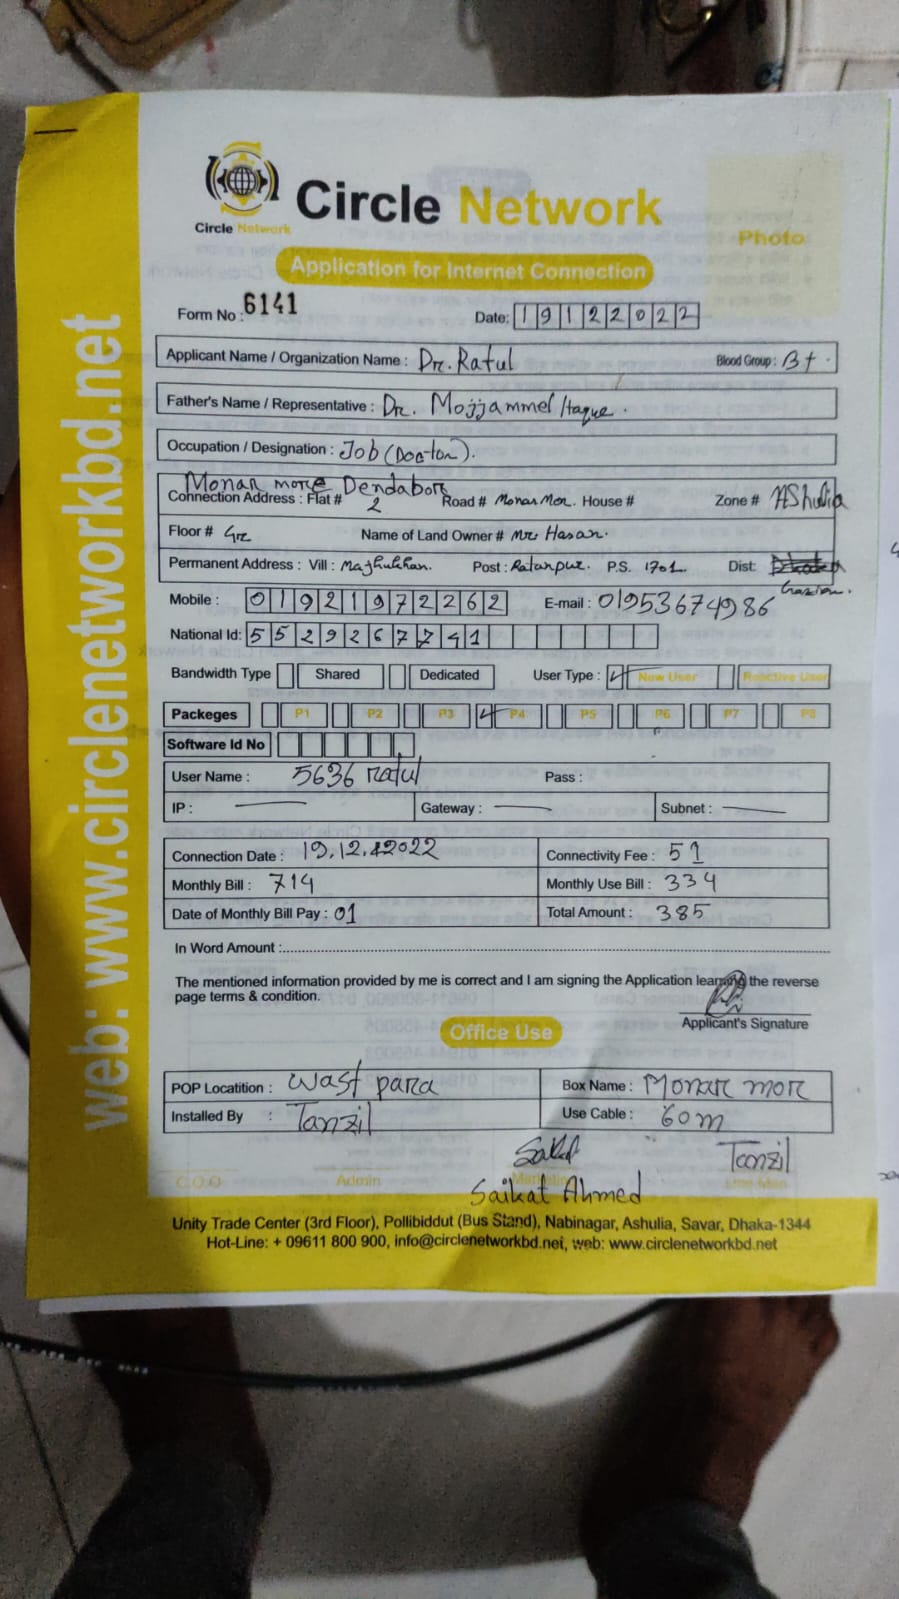 Circle Network
Circle Network
Photo
Application for Internet Connection
web: www.circlenetworkbd.net
Form No : 6141 Date: 19122022
Applicant Name / Organization Name : Dr. Ratul Blood Group : B+
Father's Name / Representative : Dr. Mojjammel Haque.
Occupation / Designation : Job (Doctor).
Monar more Dendabor
Connection Address : Flat # 2 Road # Monar Mor. House # Zone # AShulia
Floor # Name of Land Owner # Mr Hasan.
Permanent Address : Vill : Post : Ratanpur. P.S. 1701. Dist:
Mobile : 01921972262 E-mail : 01953674986
National Id: 5529267741
Bandwidth Type Shared Dedicated User Type : New User Reactive User
Packeges P1 P2 P3 P4 P5 P6 P7 P8
Software Id No
User Name : 5636 ratul Pass :
IP : Gateway : Subnet :
Connection Date : 19.12.2022 Connectivity Fee : 51
Monthly Bill : 714 Monthly Use Bill : 334
Date of Monthly Bill Pay : 01 Total Amount : 385
In Word Amount :
The mentioned information provided by me is correct and I am signing the Application learning the reverse
page terms & condition.
Applicant's Signature
Office Use
POP Locatition : wast para Box Name : Monar mor
Installed By : Tanzil Use Cable : 60m
Tanzil
C.O.O Admin
Saikat Ahmed
Unity Trade Center (3rd Floor), Pollibiddut (Bus Stand), Nabinagar, Ashulia, Savar, Dhaka-1344
Hot-Line: + 09611 800 900, info@circlenetworkbd.net, web: www.circlenetworkbd.net